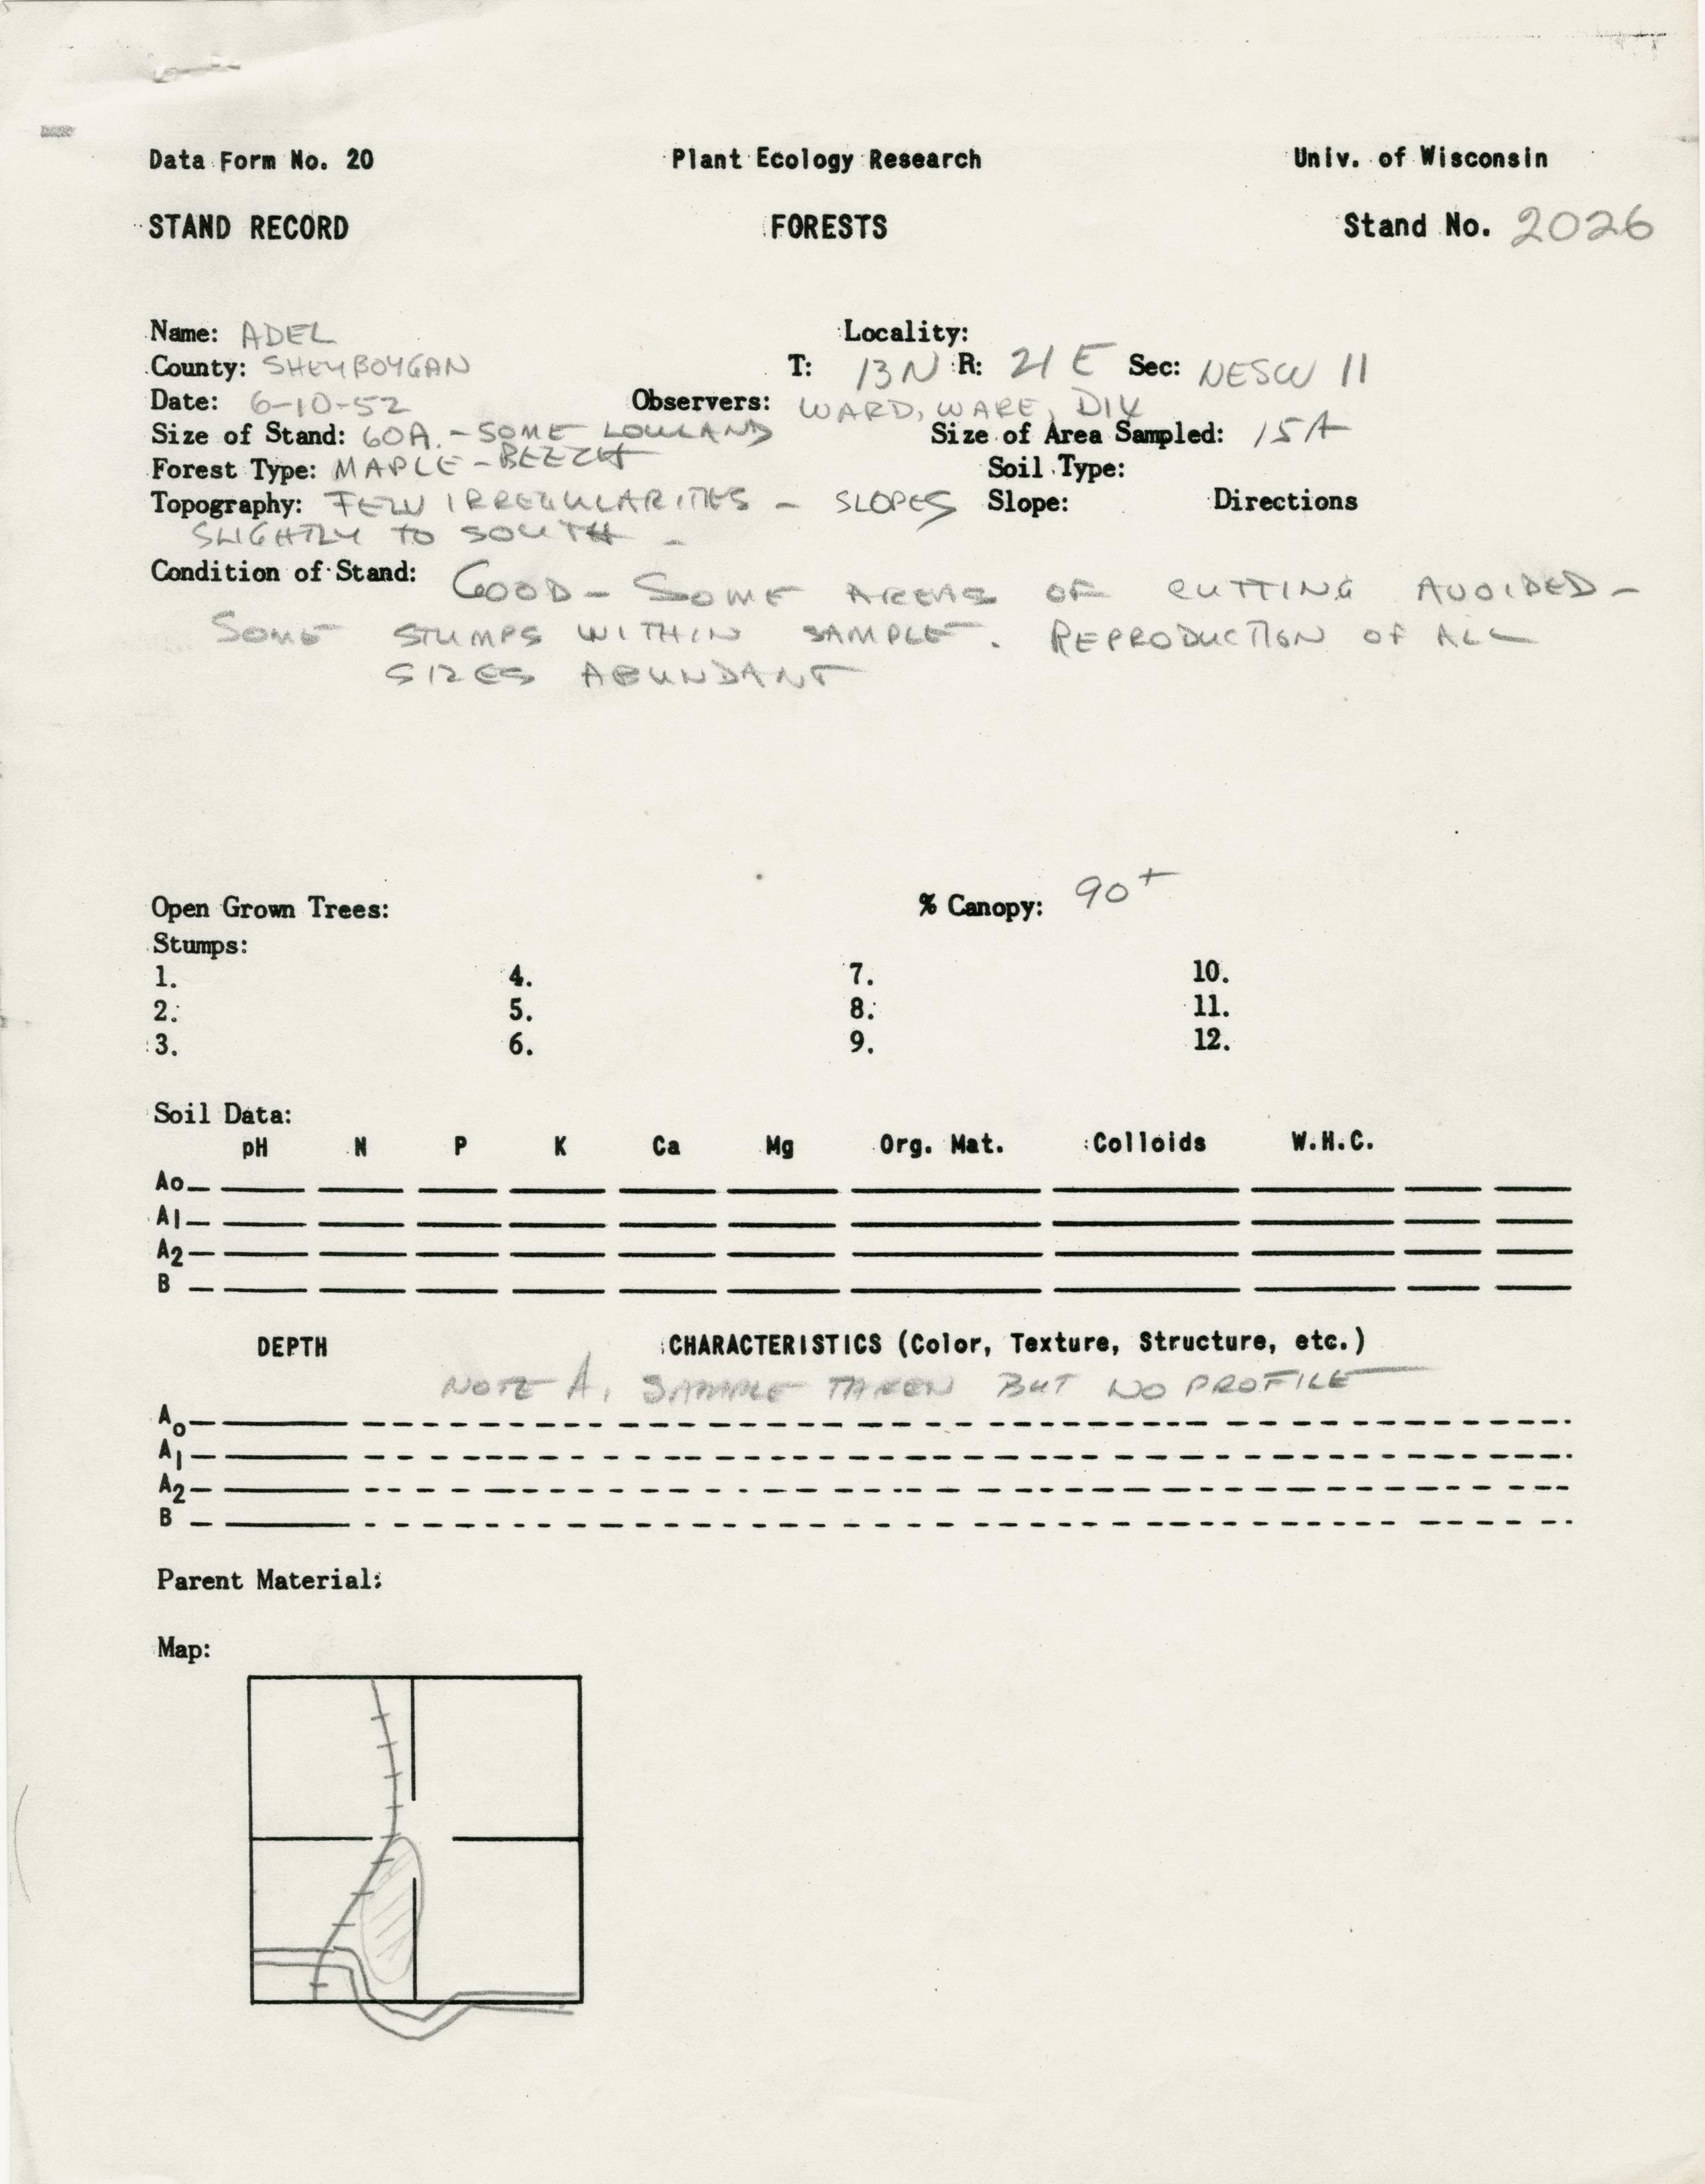 Data Form No. 20 Plant Ecology Research Univ. of Wisconsin
STAND RECORD FORESTS Stand No. 2026
Name: ADEL Locality:
County: SHEYBOYGAN T: 13N R: 21E Sec: NESW 11
Date: 6-10-52 Observers: WARD, WARE, DIX
Size of Stand: 60A. - SOME LOWLAND Size of Area Sampled: 15A
Forest Type: MAPLE - BEECH Soil Type:
Topography: FEW IRREGULARITIES - SLOPES Slope: Directions
SLIGHTLY TO SOUTH -
Condition of Stand: GOOD - SOME AREAS OF CUTTING AVOIDED -
SOME STUMPS WITHIN SAMPLE. REPRODUCTION OF ALL
SIZES ABUNDANT
Open Grown Trees: % Canopy: 90+
Stumps:
1. 4. 7. 10.
2. 5. 8. 11.
3. 6. 9. 12.
Soil Data:
pH N P K Ca Mg Org. Mat. Colloids W.H.C.
Ao
A1
A2
B
DEPTH CHARACTERISTICS (Color, Texture, Structure, etc.)
NOTE A1 SAMPLE TAKEN BUT NO PROFILE
Ao
A1
A2
B
Parent Material:
Map: